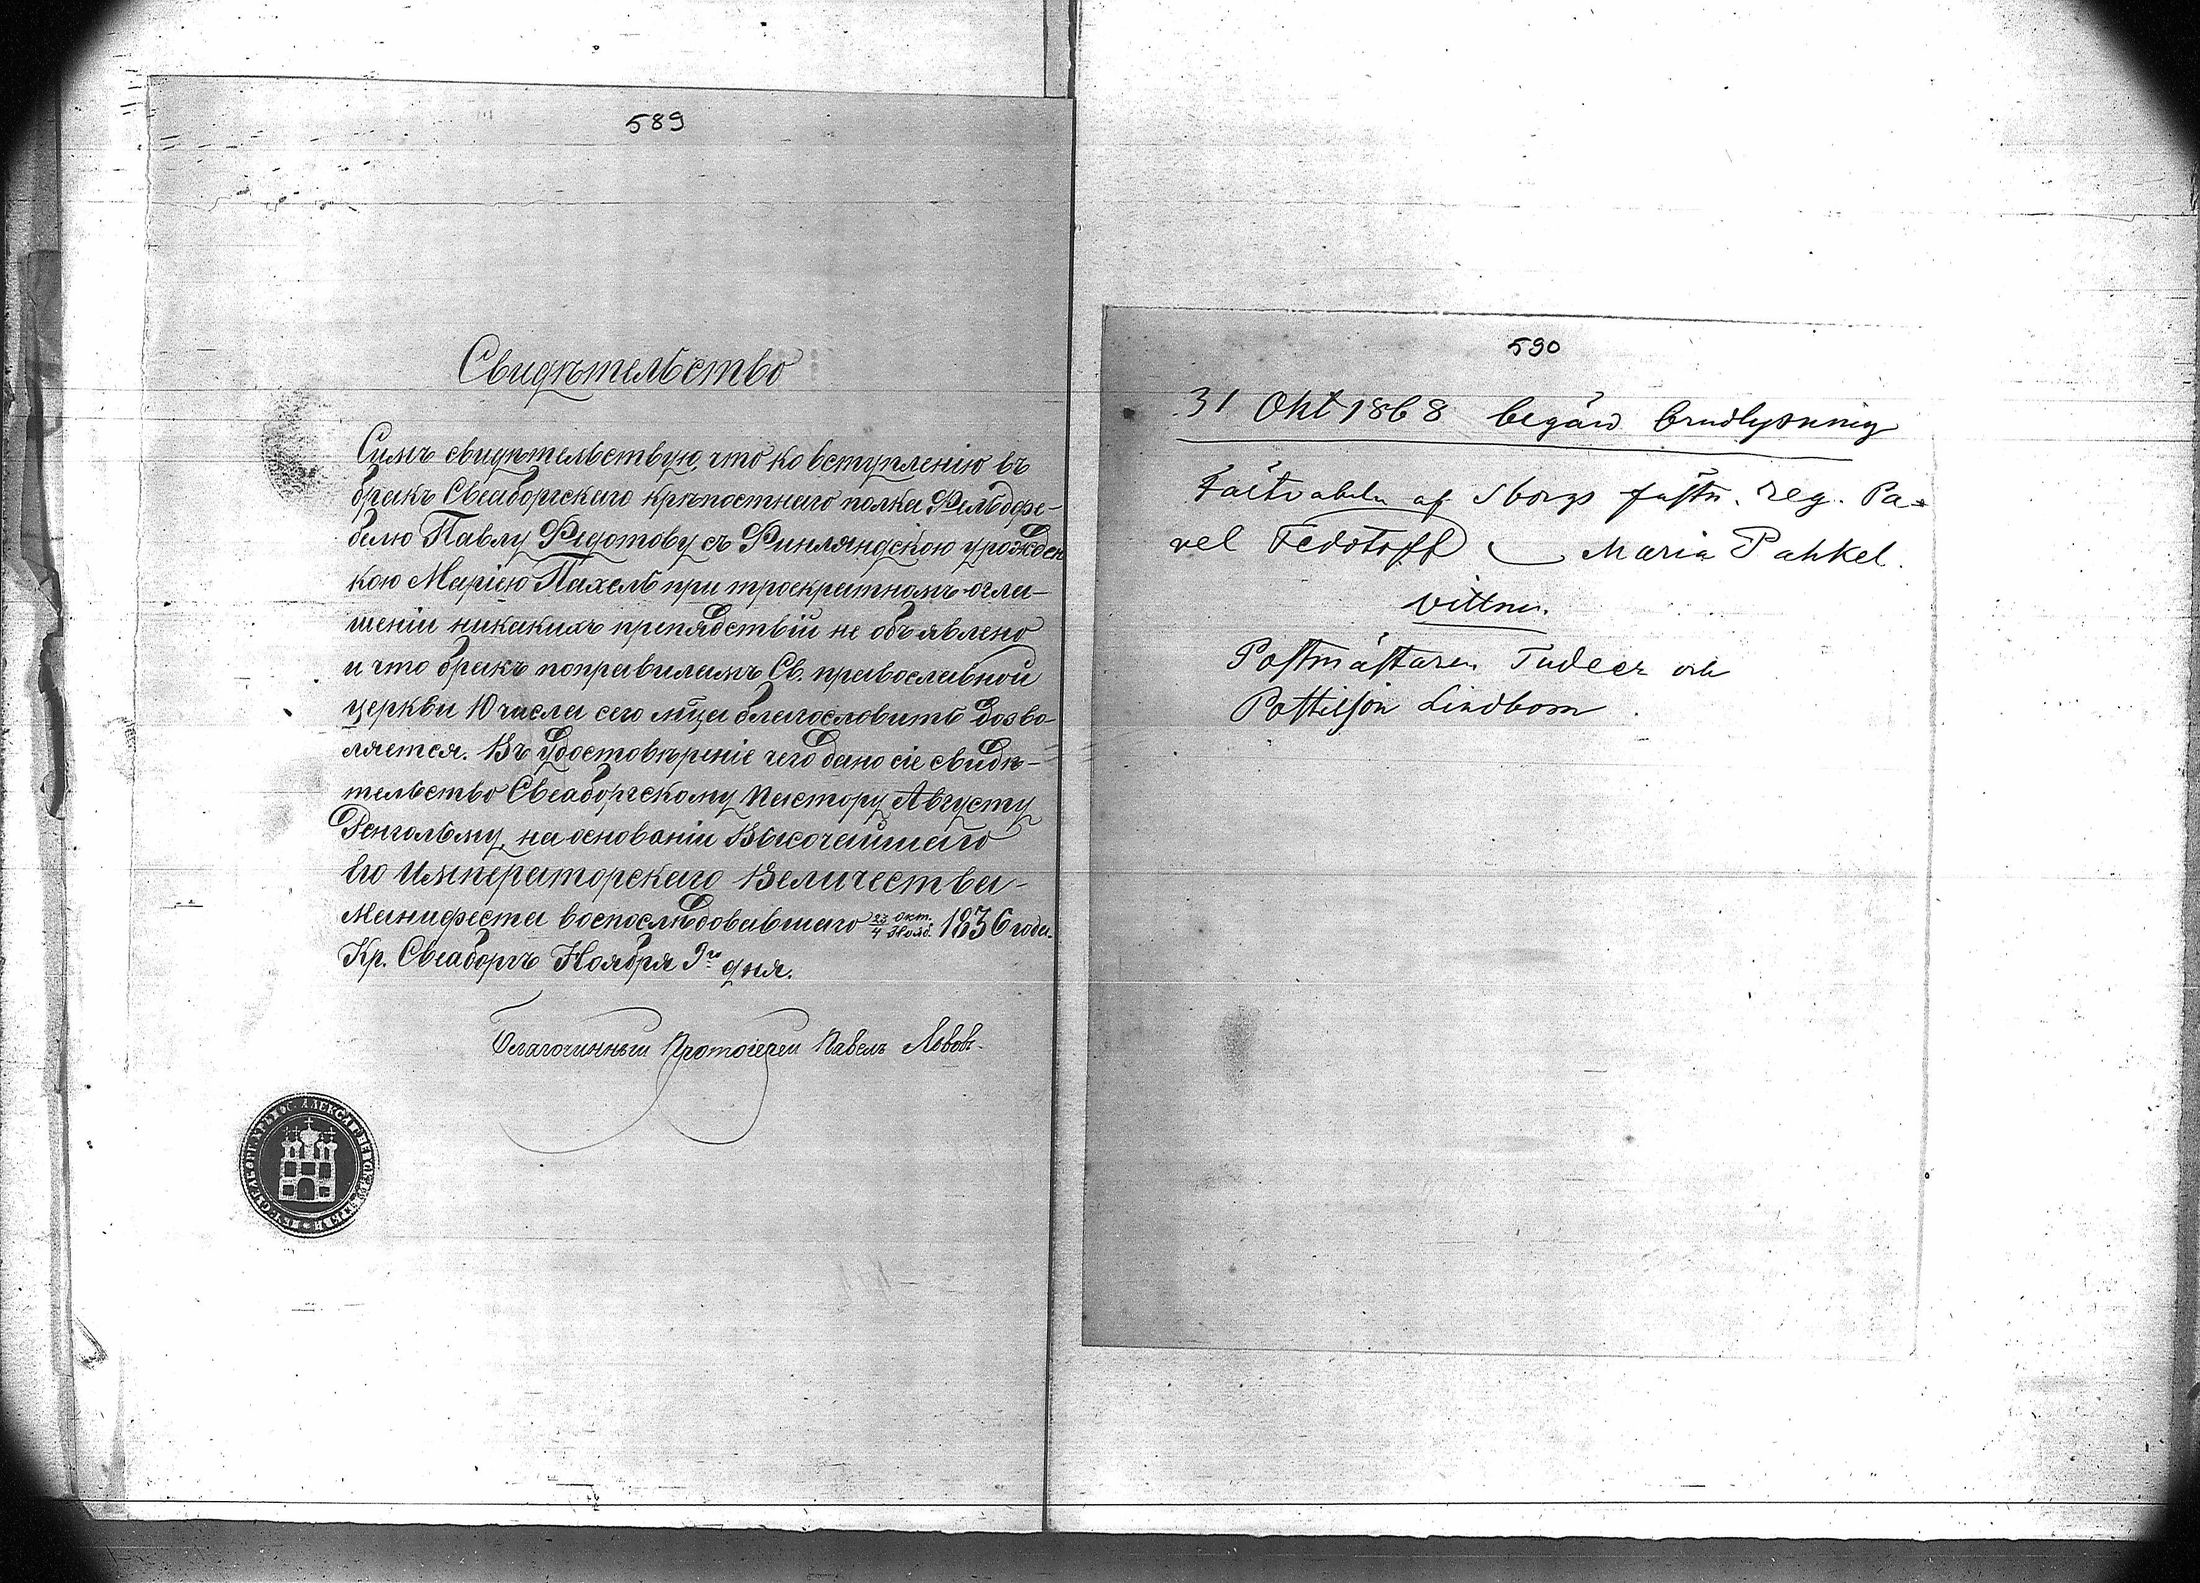 589
Свидѣтельство
Симъ свидѣтельствую, что ко вступленію въ
бракъ Свеаборгскаго крѣпостнаго полка Фельдфе-
белю Павлу Федотову съ Финляндскою урожден
кою Маріею Пахель при троекратномъ огла-
шеніи никакихъ препядствій не объявлено
и что бракъ поправиламъ Св. православной
церкви 10 числа сего мца благословить дозво
ляется. Въ удостовѣреніе чего дано сіе свидѣ-
тельство Свеаборгскому Пастору Августу
на основаніи Высочайшаго
Его Императорскаго Величества
Манифеста воспослѣдовавшаго 23 Окт. / 4 Нояб. 1836 года.
Кр. Свеаборгъ Ноября 9го дня.
Благочинный Протоіерей Павелъ Львовъ
590
31 Okt 1868 begärd brudlysning
Fältväbeln af Sborgs fästn. reg. Pa-
vel Fedotoff Maria Pahkel.
Vittnen.
Postmästaren Tudeer och
Postiljon Lindbom